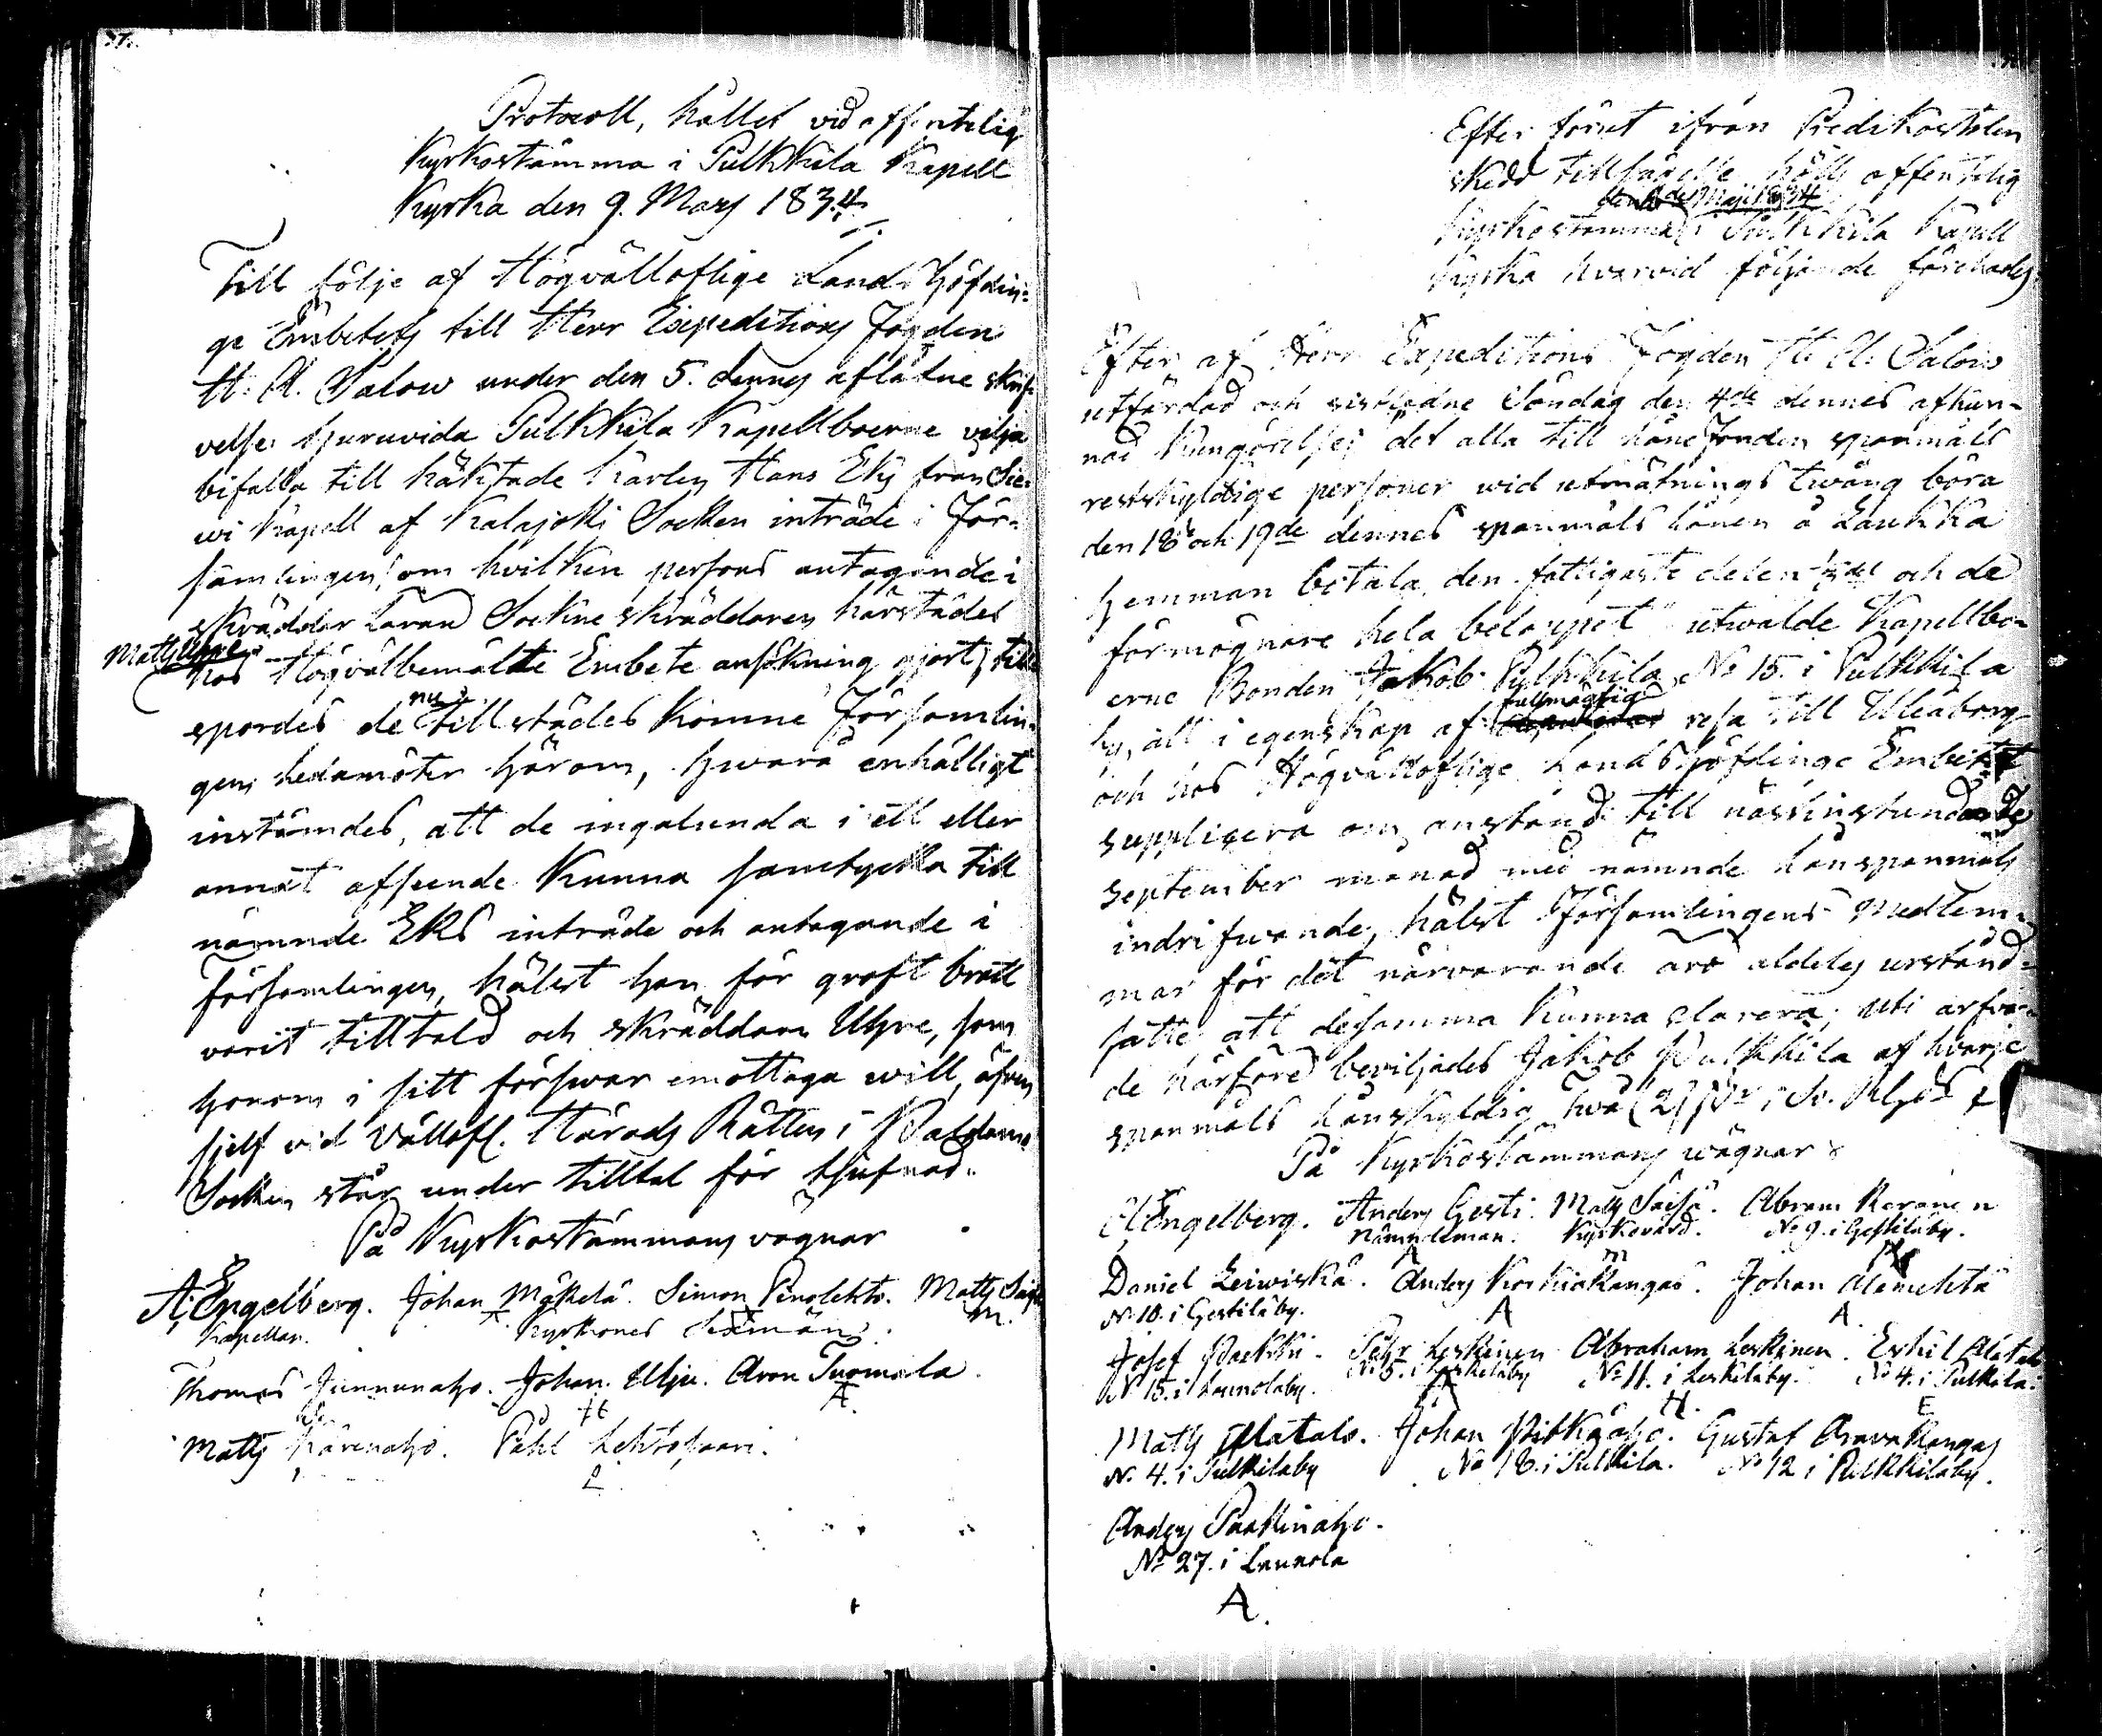 Protocoll, hållet vid offentelig
Kyrkostämma i Pulkkila Kapell
Kyrka den 9. Mars 1834.
Till följe af Högvälloflige Landshöfdin-
ge Embetets till Herr Expeditions Fogden
H. A. Salow under den 5. dennes aflåtne skrif-
velse huruvida Pulkkila Kapellboerne vilja
bifalla till häktade Karlen Hans Eks från Sie-
wi Kapell af Kalajoki Socken inträde i För-
samlingen, om hvilken persons antagande i
skräddar Laran Sockne skräddaren härstädes
Matts Uljue
hos Högvälbemälte Embete ansökning gjort, till-
nu
spordes de tillstädes komne Församlin-
gens ledamöter härom, hwarå enhälligt
instämdes, att de ingalunda i ett eller
annat afseende kunna samtycka till
nämnde Eks inträde och antagande i
församlingen, hälst han för groft brott
varit tilltald och skräddare Uljue, som
honom i sitt försvar emottaga will, äfven
sjelf vid Vällofl. Härads Rätten i Paldamo
Socken står under tilltal för tjufnad.
På Kyrkostämmans vägnar
A. Engelberg. Johan Mäkelä. Simon Penolehto. Matts
Kapellan. Kyrkones Sexmän. m.
Thomas Junnunaho. Johan Uljue. Aron Tuomela.
A.
Matts Kärenaho. Påhl Lehtosaari.
Efter förut ifrån Predikostolen
skedd tillsägelse hölls offentelig
Maji 1834
Kyrkostämma i Pulkkila Kapell
Kyrka hvarvid följande förehades
Efter af Herr Expeditions Fogden H. A. Salow
utfärdad och sistledne Söndag den 4de dennes afkun-
nad Kungörelse, det alla till låne Fonden spanmåls
restskyldige personer wid utmätnings twång böra
den 18de och 19de dennes spanmåls lånen å Laukka
hemman betala, den fattigaste delen och de
förmögnare hela beloppet utwalde Kapellbo-
erne Bonden Jakob Pulkkila No 15. i Pulkkila
fullmägtig
by, att i egenskap af resa till Uleåborg
och hos Högvälloflige Landshöfdinge Embetet
supplicera om anstånd till nästinstundande
September månad med nämnde lånspanmåls
indrifwande, hälst Församlingens Medlem-
mar för det närvarande äro aldeles urstånd-
satte, att desamma kunna clarera; uti arfvo-
de härföre beviljades Jakob Pulkkila af hvarje
spanmåls lånskyldig två (2)
På Kyrkostämmans wägnar
A. Engelberg. Anders Gesti. Matts Saisa. Abram Keranen
Nämndeman. Kyrkovärd. No 9. i Gestilaby.
Daniel Leiwiskä. Anders Korkiakangas. Johan Alamehtä
No 10. i Gestiläby. A A.
Josef Packki. Pehr Leskinen Abraham Leskinen. Eskil Alatalo
No 15. i Launolaby. No 5. i Leskeläby No 11. i Leskeläby. No 4. i Pulkkila.
A H. E
Matts Alatalo. Johan Pitkäaho. Gustaf Aravakangas
No 4. i Pulkilaby No 18. i Pulkila. No 12 i Pulkkilaby.
Anders Paakkinaho.
No 27. i Launola
A.